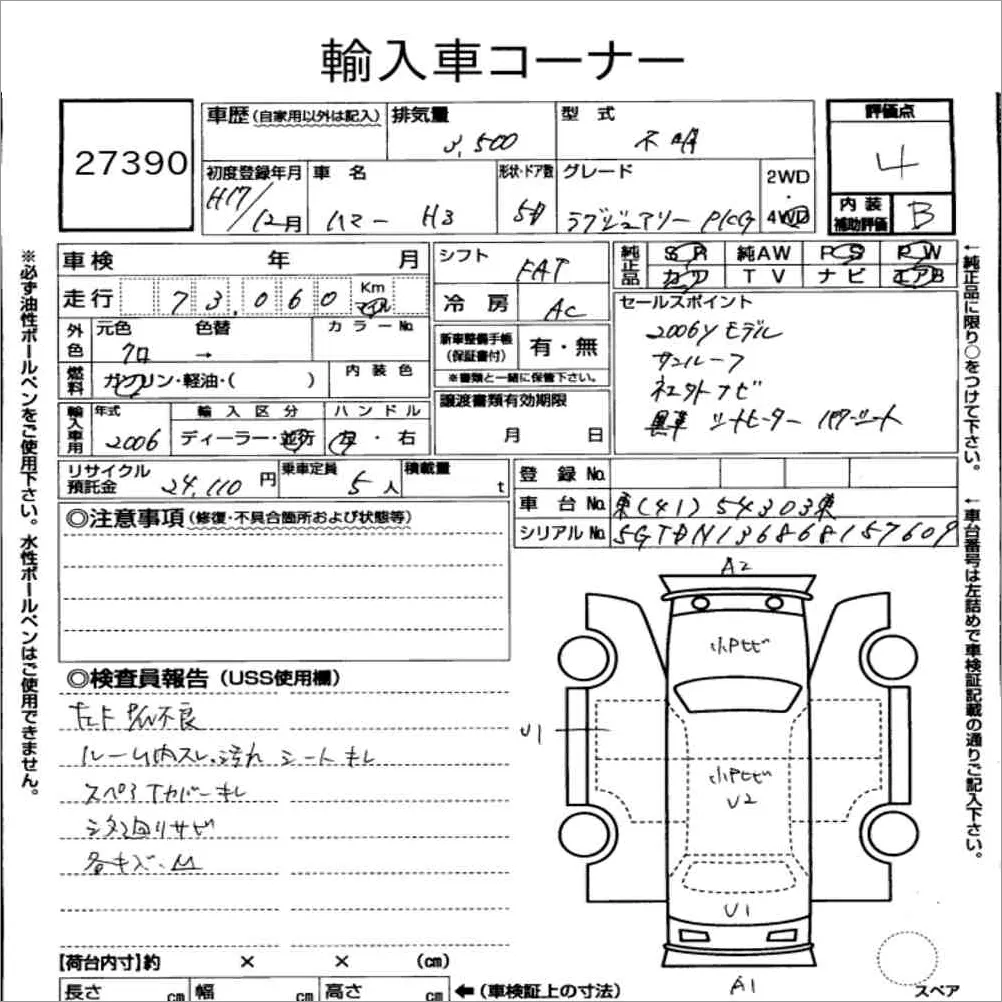 輸入車コーナー
27390
車歴(自家用以外は記入)
排気量
3,500
型式
不明
評価点
4
初度登録年月
H17/12月
車名
ハマー H3
形状・ドア数
5D
グレード
ラグジュアリー PKG
2WD
4WD
内装
補助評価
B
車検 年 月
走行 73,060 Km
マイル
外色
元色 色替
クロ →
カラーNo.
燃料
ガソリン・軽油・( )
内装色
輸入車用
年式
2006
輸入区分
ディーラー・並行
ハンドル
左・右
シフト
FAT
冷房
AC
新車整備手帳
(保証書付)
有・無
※書類と一緒に保管下さい。
譲渡書類有効期限
月 日
純正品
SR 純AW PS PW
カワ TV ナビ エアB
セールスポイント
2006yモデル
サンルーフ
社外ナビ
黒革 シートヒーター パワーシート
リサイクル
預託金
24,110円
乗車定員
5人
積載量
t
登録No.
車台No.
東(41)54303東
シリアルNo.
5GTDN136868157609
◎注意事項(修復・不具合箇所および状態等)
◎検査員報告(USS使用欄)
ルーム内スレ、汚れ シートキレ
スペアTカバーキレ
下廻りサビ
各キズ・凹
A2
小Pヒビ
U1
小Pヒビ
U2
U1
A1
スペア
【荷台内寸】約 × × (cm)
長さ cm
幅 cm
高さ cm
←(車検証上の寸法)
※必ず油性ボールペンをご使用下さい。水性ボールペンはご使用できません。
←純正品に限り○をつけて下さい。
←車台番号は左詰めで車検証記載の通りご記入下さい。